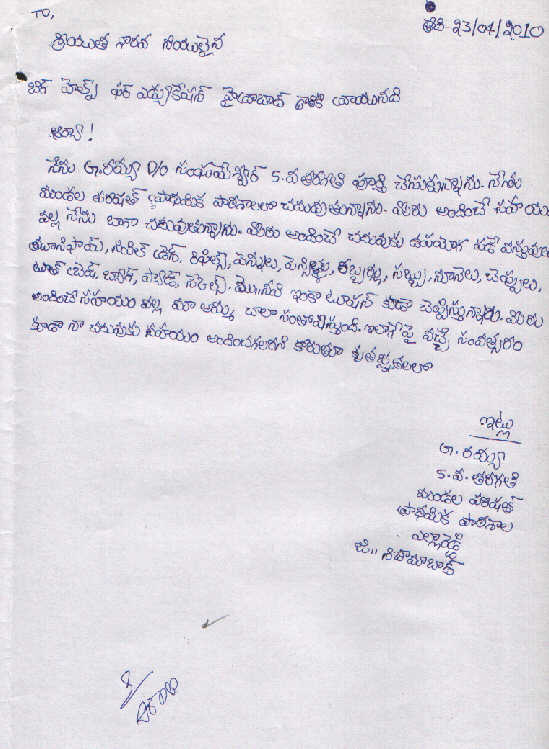 To,
తేది-23/04/2010
శ్రీయుత గౌరవ నీయులైన
బిగ్ హెల్ప్ ఫర్ ఎడ్యుకేషన్ హైదరాబాద్ గారికి వ్రాయునది
ఆర్యా!
నేను A.రమ్య D/o సంఘమేశ్వర్ 5.వ తరగతి పూర్తి చేసుకున్నాను. నేను
మండల పరిషత్ ప్రాథమిక పాఠశాలలో చదువుతున్నాను. మీరు అందించే సహాయం
వల్ల నేను బాగా చదువుతున్నాను. మీరు అందించే చదువుకు ఉపయోగ పడే వస్తువులు
స్కూల్ డ్రెస్. రిఫిల్స్, పెన్నులు, పెన్సిళ్లు, రబ్బర్లు, సబ్బు, నూనెలు, చెప్పులు,
టూత్ బ్రష్, ఇంకా ట్యూషన్ కూడా చెప్పిస్తున్నారు. మీరు
అందించే సహాయం వల్ల మా అమ్మ చాలా సంతోషిస్తుంది. ఇలాగే పై వచ్చే సంవత్సరం
కూడా నా చదువుకు సహాయం అందించగలరని కోరుతూ కృతజ్ఞతలతో
ఇట్లు
A. రమ్య
5.వ. తరగతి
మండల పరిషత్
ప్రాథమిక పాఠశాల
ఎల్లారెడ్డి
జి.. నిజామాబాద్